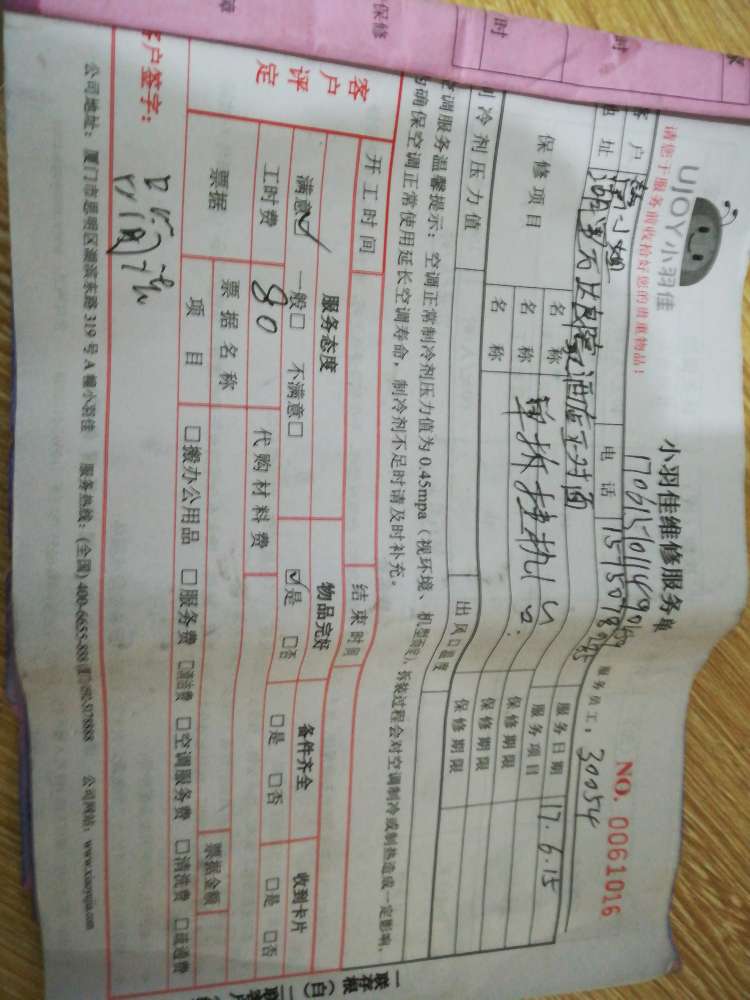 UJOY小羽佳
小羽佳维修服务
NO. 0061016
请您于服务前收拾好您的贵重物品!
服务员工: 30054
客户
电话
服务日期 17.6.15
地址
服务项目
保修项目
名称
保修期限
名称 单拆挂机
保修期限
名称
保修期限
制冷剂压力值
出风口温度
空调服务温馨提示: 空调正常制冷剂压力值为0.45mpa (视环境、机型而定), 拆装过程会对空调制冷或制热造成一定影响,
确保空调正常使用延长空调寿命, 制冷剂不足时请及时补充。
开工时间
结束时间
客户评定
服务态度
物品完好
备件齐全
收到卡片
满意☑ 一般□ 不满意□
☑是 □否
□是 □否
□是 □否
工时费 80
代购材料费
票据
票据名称
票据金额
项目
□搬办公用品 □服务费 □清洁费 □空调服务费 □清洗费 □疏通费
客户签字:
公司地址: 厦门市思明区湖滨东路319号A幢小羽佳 服务热线: (全国) 400-6655-888
公司网站: www.xiaoyujia.com
保修
时
时